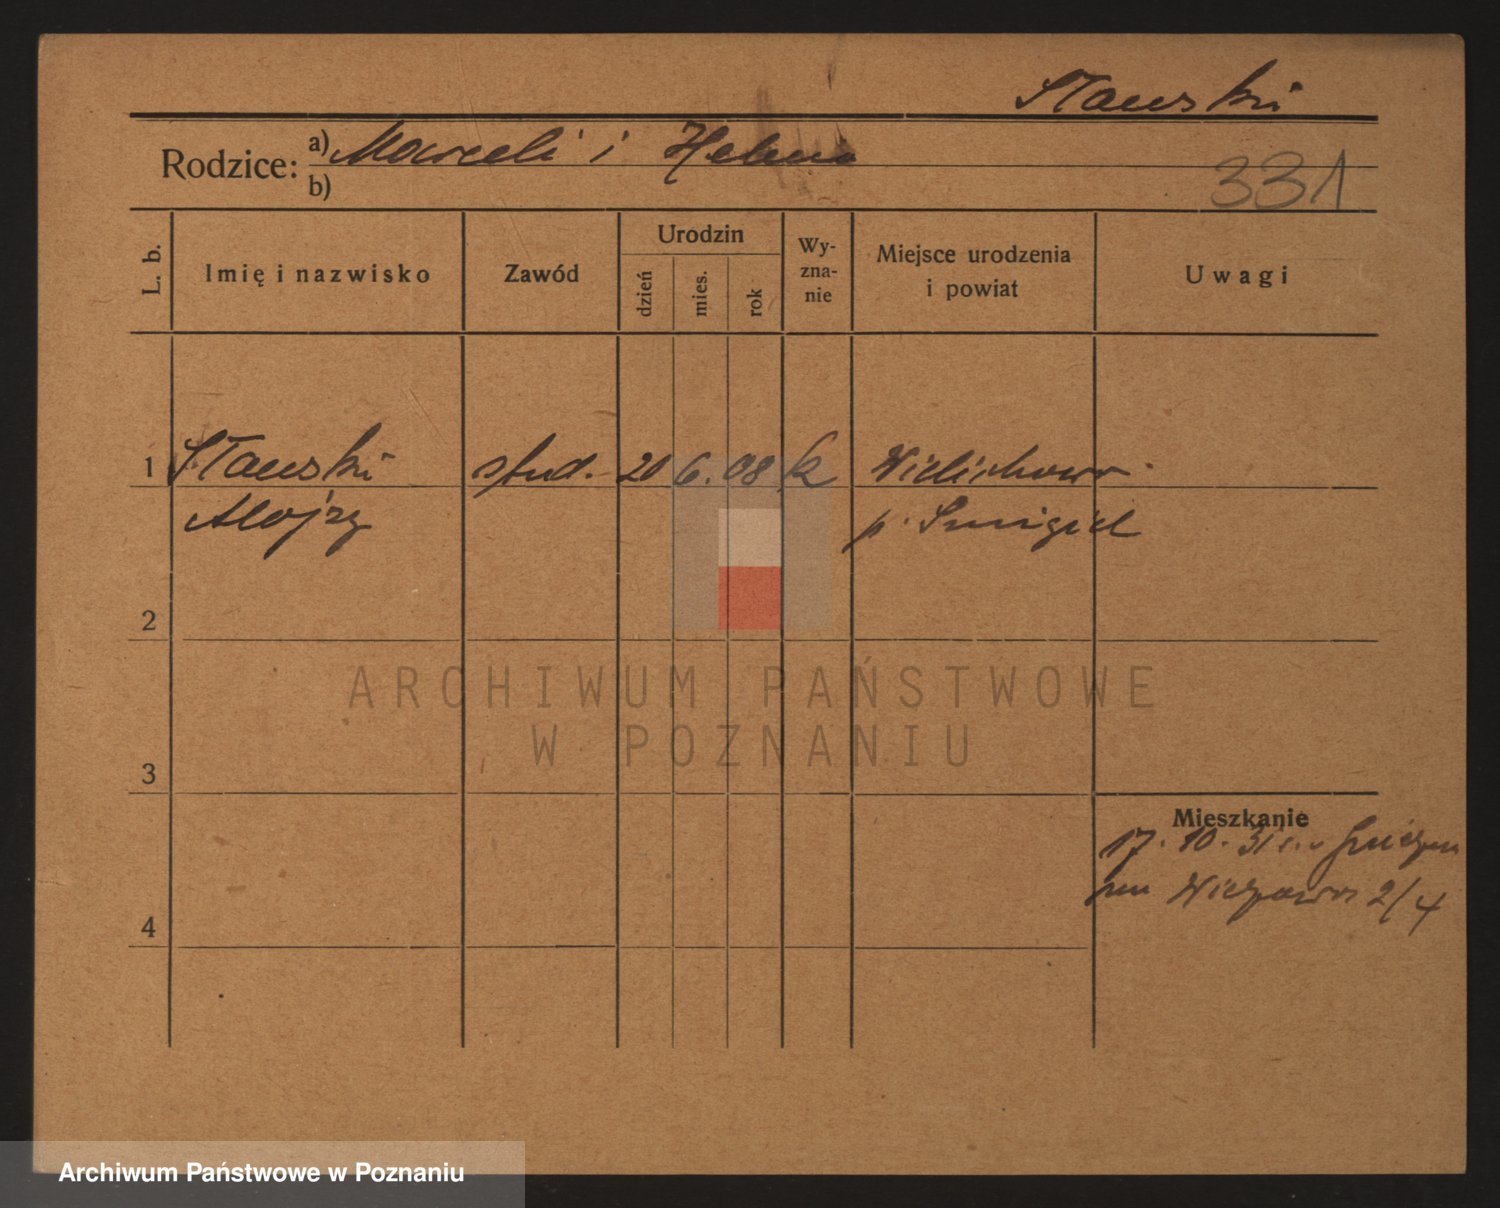 Sławski
Rodzice: a) Marceli i Helena
b)
331
L. b.
Imię i nazwisko
Zawód
Urodzin
dzień
mies.
rok
Wy-
zna-
nie
Miejsce urodzenia
i powiat
Uwagi
1 Sławski stud. 20 6. 08 k Wielichowo
Alojzy p. Smigiel
2
3
4
Mieszkanie
17. 10. 31
2/4
ARCHIWUM PAŃSTWOWE
W POZNANIU
Archiwum Państwowe w Poznaniu